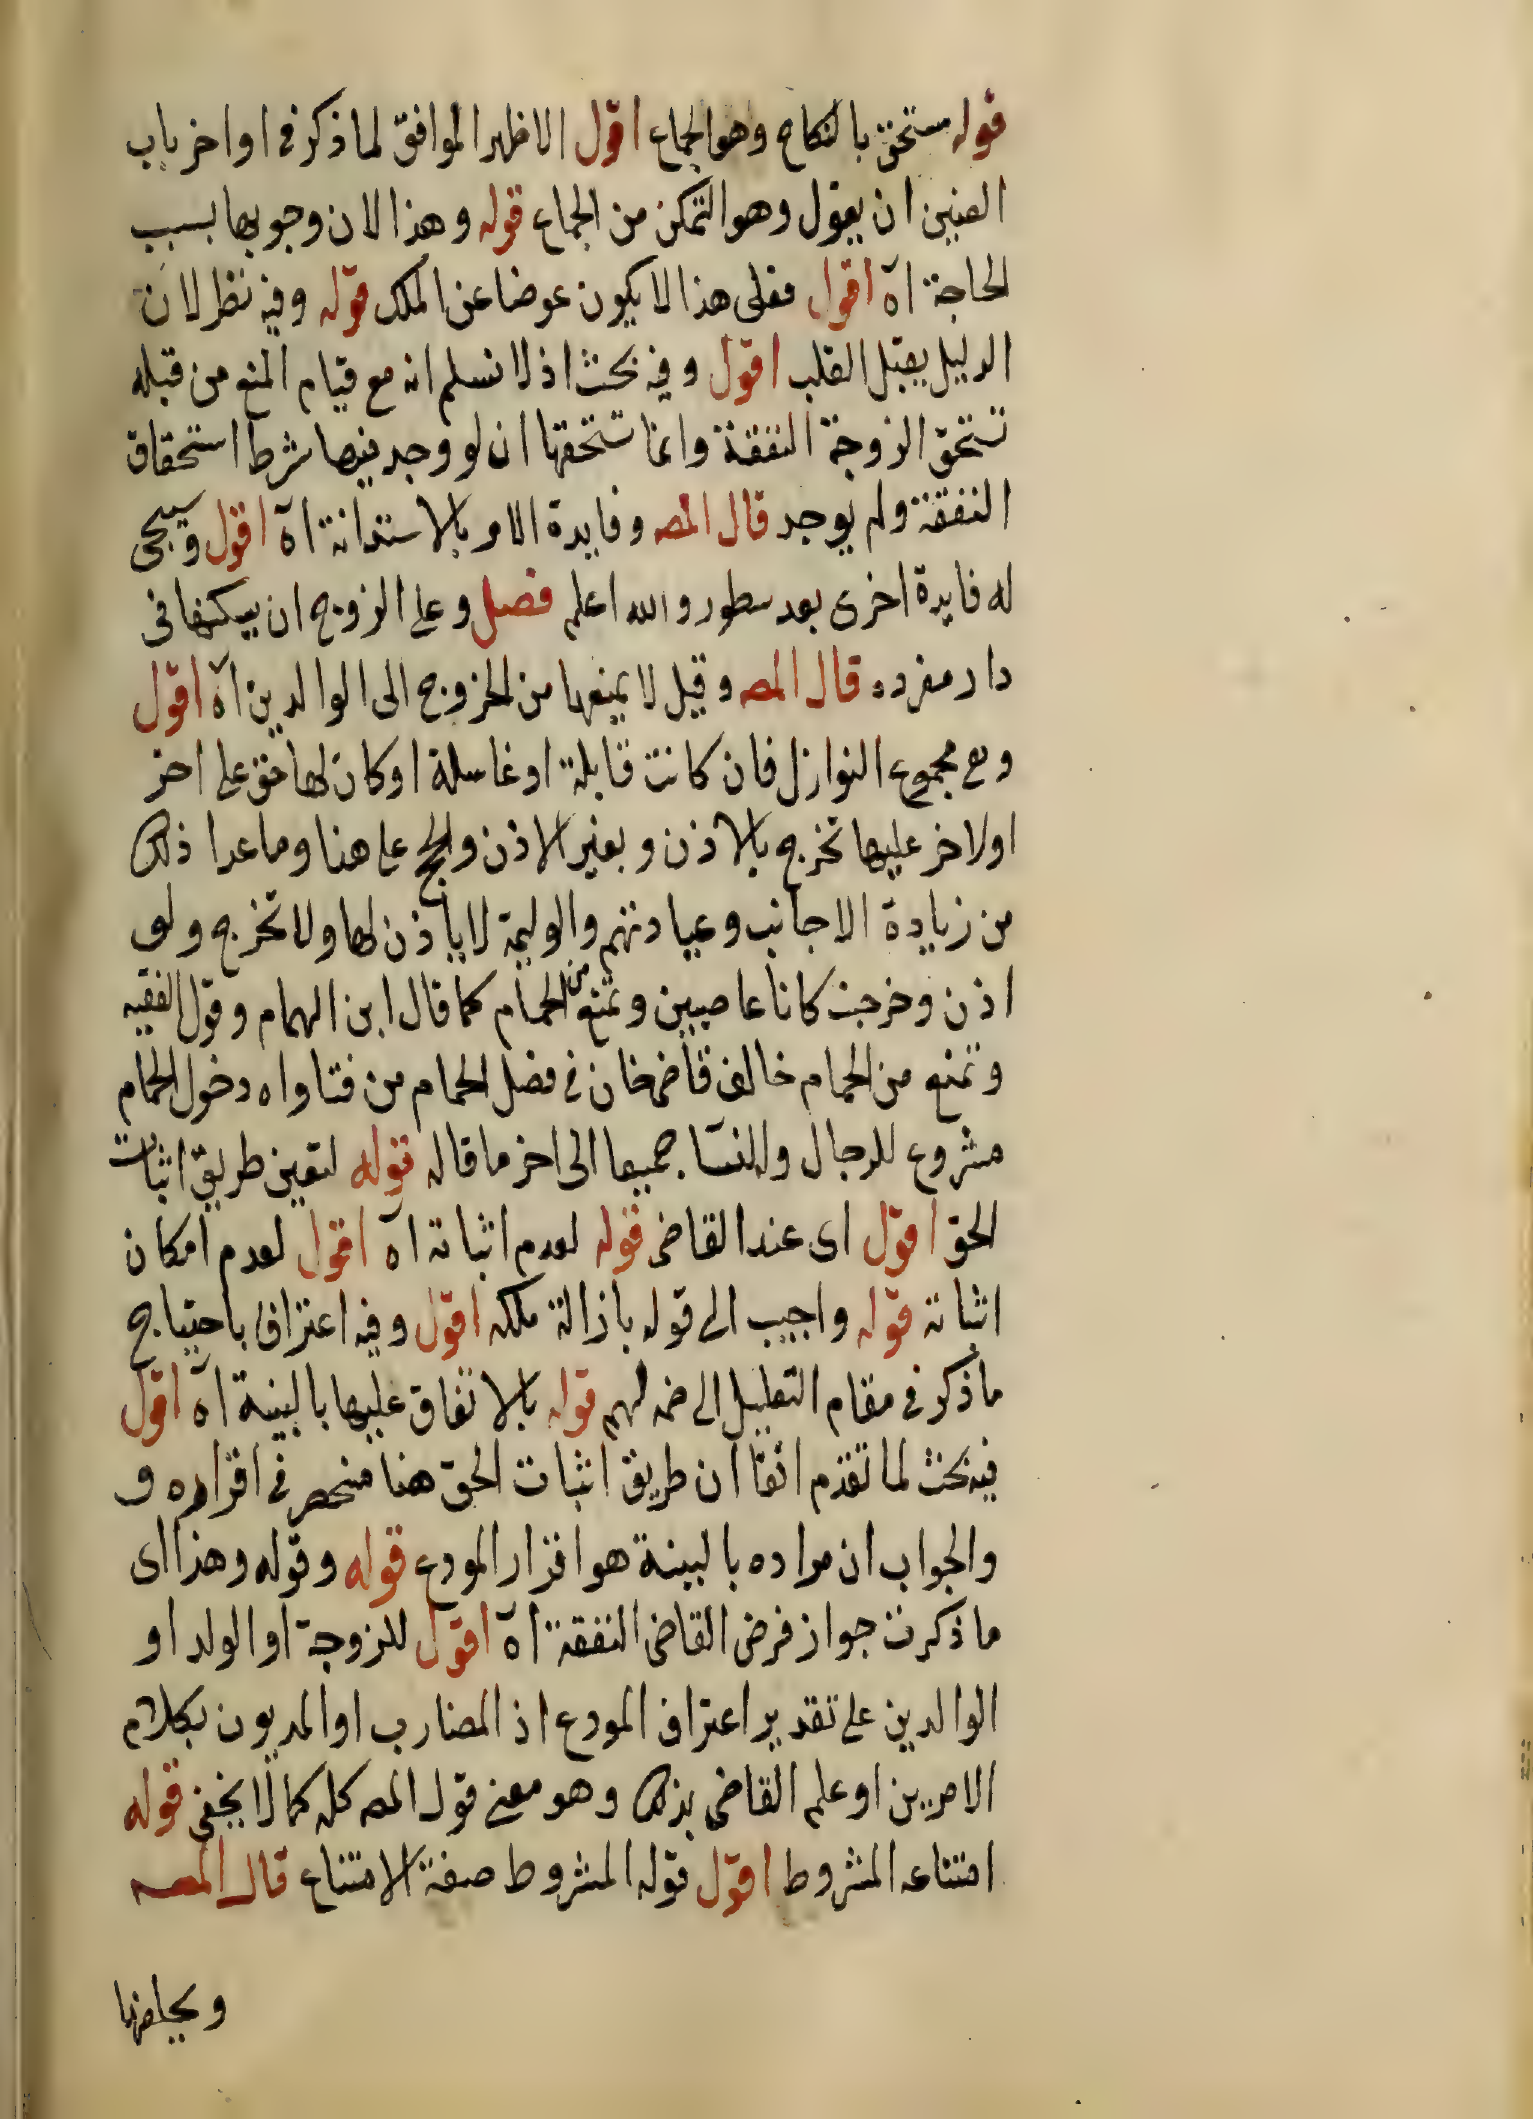 قوله مستحق بالنكاح وهو الجماع اقول الاظهر الموافق لما ذكر فى اواخر باب
العنين ان يقول وهو التمكن من الجماع قوله وهذا لان وجوبها بسبب
الحاجة اه اقول فعلى هذا لا يكون عوضا عن الملك قوله وفيه نظر لان
الدليل يقبل القلب اقول وفيه بحث اذ لا نسلم انه مع قيام المنع من قبله
تستحق الزوجة النفقة وانما تستحقها ان لو وجد فيها شرط استحقاق
النفقة ولم يوجد قال المصـ وفايدة الامر بالاستدانة اه اقول وسيجى
له فايدة اخرى بعد سطور والله اعلم فصل وعلى الزوج ان يسكنها فى
دار مفرده قال المصـ وقيل لا يمنعها من الخروج الى الوالدين اه اقول
وفى مجموع النوازل فان كانت قابلة او غاسلة او كان لها حق على اخر
او لاخر عليها تخرج بالاذن وبغير الاذن والحج على هذا وما عدا ذلك
من زيادة الاجانب وعيادتهم والوليمة لا ياذن لها ولا تخرج ولو
اذن وخرجت كانا عاصيين وتمنع من الحمام كما قال ابن الهمام وقول الفقيه
وتمنع من الحمام خالفه قاضيخان فى فصل الحمام من فتاواه دخول الحمام
مشروع للرجال وللنسا جميعا الى اخر ما قاله قوله لتعين طريق اثبات
الحق اقول اى عند القاضى قوله لعدم اثباته اه اقول لعدم امكان
اثباته قوله واجيب الى قوله بازالة ملكه اقول وفيه اعتراف باحتياج
ما ذكر فى مقام التعليل الى ضميمة قوله بالاتفاق عليها بالبينة اه اقول
فيه بحث لما تقدم انفا ان طريق اثبات الحق هنا منحصر فى اقراره و
والجواب ان مراده بالبينة هو اقرار المودع قوله وقوله وهذا اى
ما ذكرت جواز فرض القاضى النفقة اه اقول للزوجة او الولد او
الوالدين على تقدير اعتراف المودع اذ المضارب او المديون بكلام
الامرين او علم القاضى بذلك وهو معنى قول المصـ كله كما لا يخفى قوله
امتناعه المشروط اقول قوله المشروط صفة الامتناع قال المصـ
ويحلفها